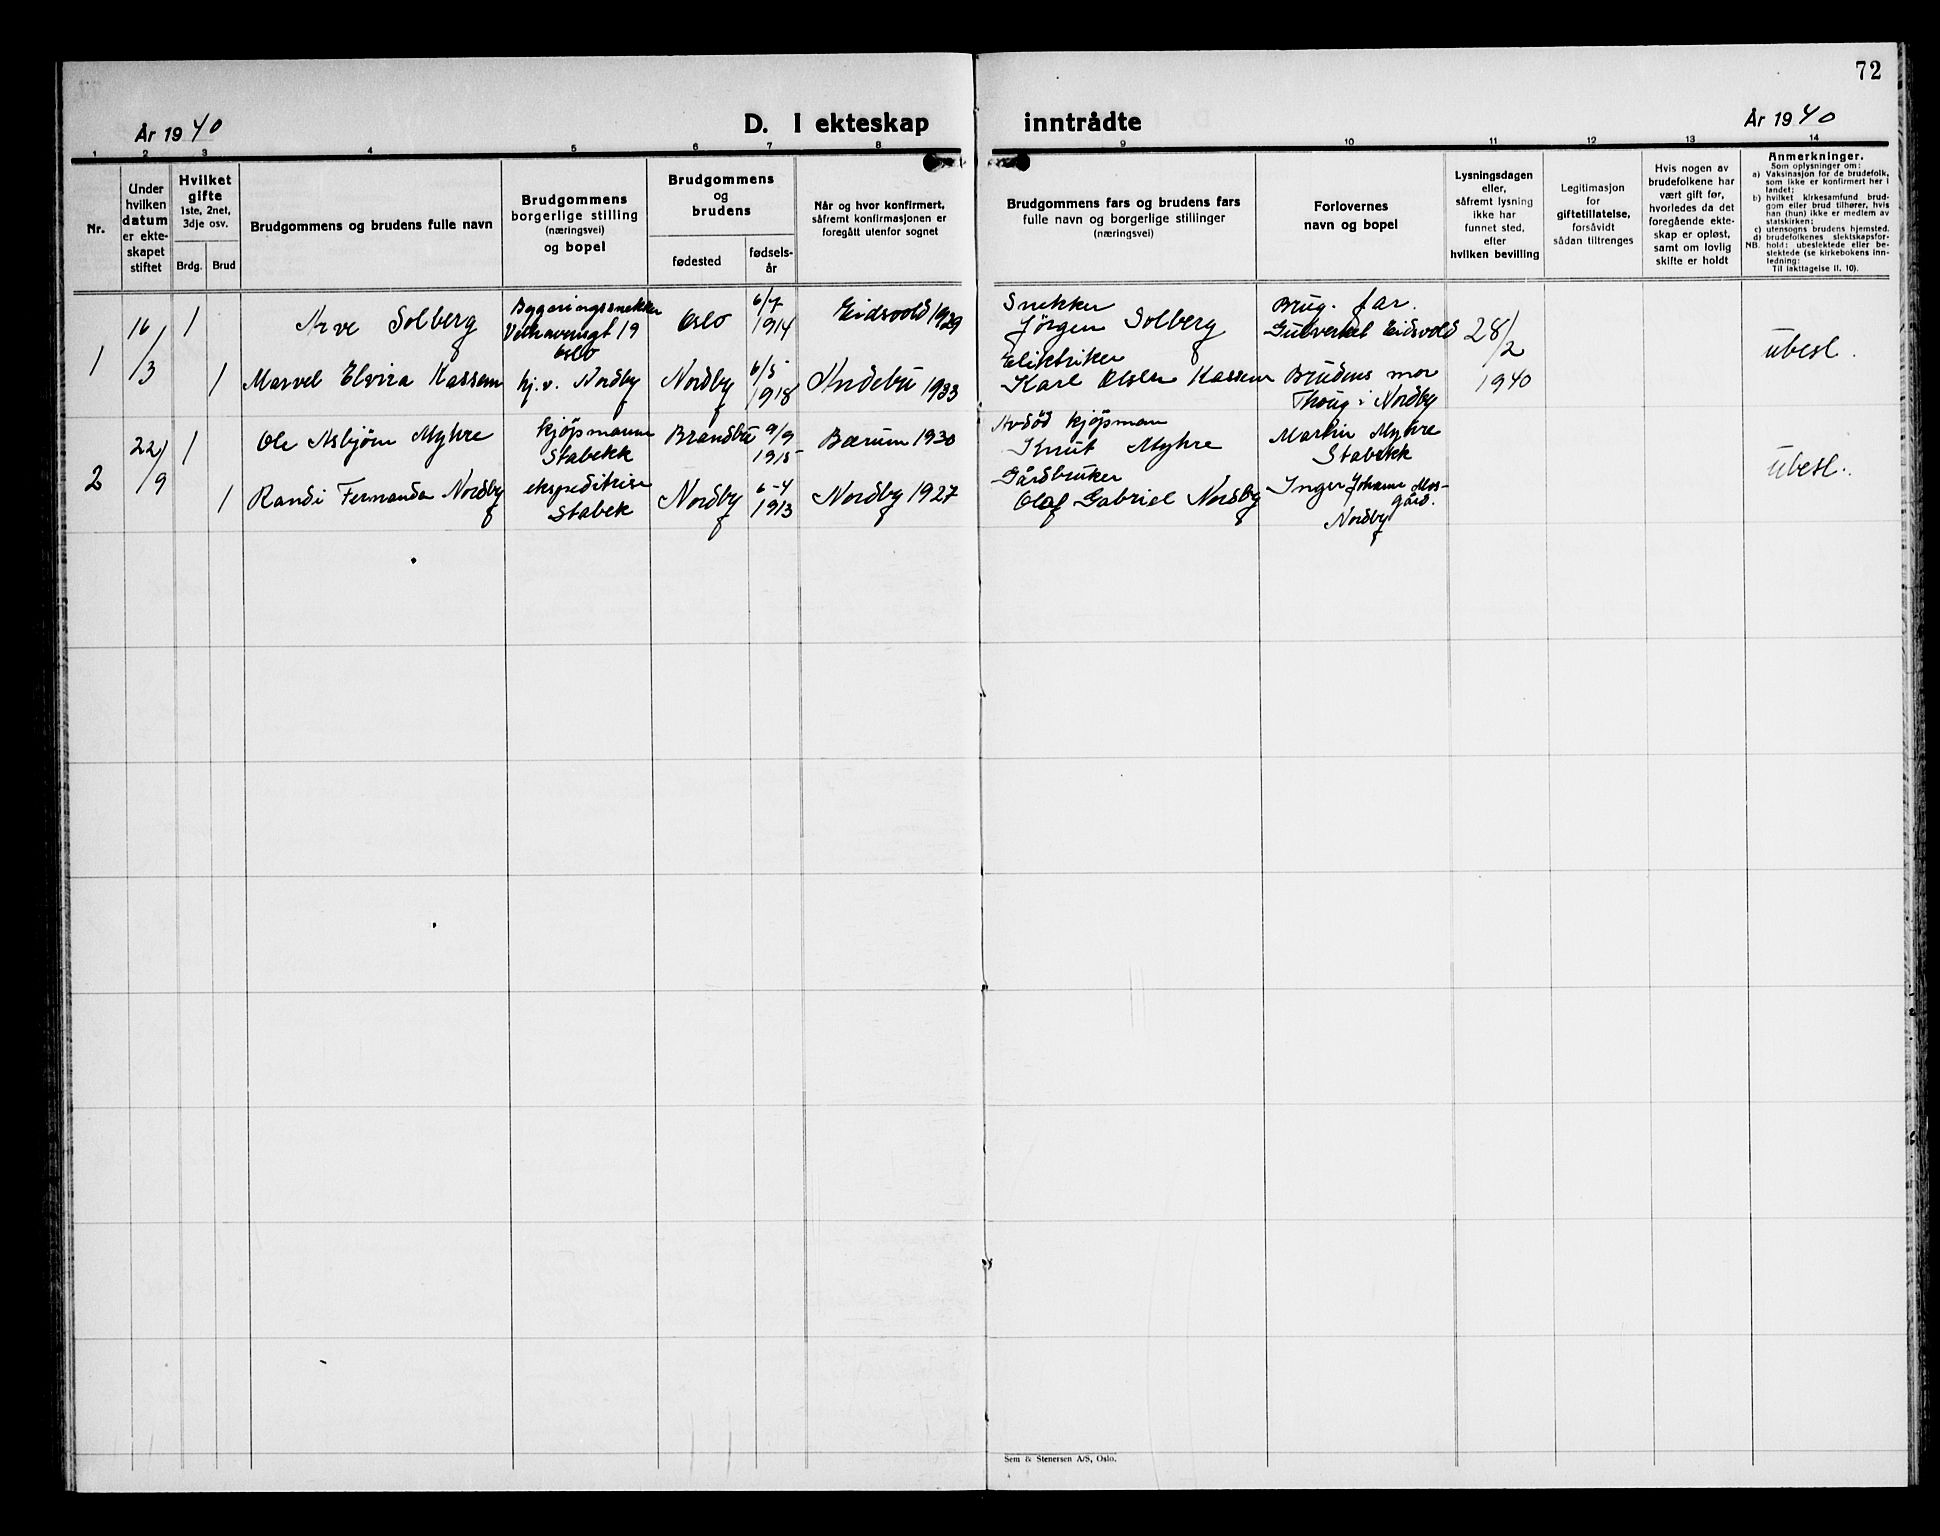 72
År 1940
D. I ekteskap inntrådte
År 1940
1 2 3 4 5 6 7 8 9 10 11 12 13 14
Nr.
Under
hvilken
datum
er ekte-
skapet
stiftet
Hvilket
gifte
1ste, 2net,
3dje osv.
Brdg. Brud
Brudgommens og brudens fulle navn
Brudgommens
borgerlige stilling
(næringsvei)
og bopel
Brudgommens
og
brudens
fødested
fødsels-
år
Når og hvor konfirmert,
såfremt konfirmasjonen er
foregått utenfor sognet
Brudgommens fars og brudens fars
fulle navn og borgerlige stillinger
(næringsvei)
Forlovernes
navn og bopel
Lysningsdagen
eller,
såfremt lysning
ikke har
funnet sted,
efter
hvilken bevilling
Legitimasjon
for
giftetillatelse,
forsåvidt
sådan tiltrenges
Hvis nogen av
brudefolkene har
vært gift før,
hvorledes da det
foregående ekte-
skap er opløst,
samt om lovlig
skifte er holdt
Anmerkninger.
Som oplysninger om:
a) Vaksinasjon for de brudefolk,
som ikke er konfirmert her i
landet;
b) hvilket kirkesamfund brud-
gom eller brud tilhører, hvis
han (hun) ikke er medlem av
statskirken;
c) utensogns brudens hjemsted.
d) brudefolkenes slektskapsfor-
NB. hold: ubeslektede eller be-
slektede (se kirkebokens inn-
ledning:
Til iakttagelse II. 10).
1
16/3
1
Arve Solberg
Bygningssnekker
19
Oslo
Oslo
6/7
1914
Eidsvold 1929
Snekker
Jörgen Solberg
Brug. far.
Gulverket Eidsvold
28/2
1940
ubesl.
1
Marvel Elvira Kassem
hj.v. Nordby
Nordby
6/5
1918
Andebu 1933
Elektriker
Karl Olsen Kassem
Brudens mor
Thoug i Nordby
2
22/9
1
Ole Asbjörn Myhre
kjøpmann
Stabekk
Brandbu
9/9
1915
Bærum 1930
Avdöd kjöpman
Knut Myhre
Martin Myhre
Stabekk
ubesl.
1
Randi Fernanda Nordby
ekspeditrise
Stabek
Nordby
6-4
1913
Nordby 1927
Gårdbruker
Olaf Gabriel Nordby
Inger Johanne Mos-
gård.
Nordby
Sem & Stenersen A/S, Oslo.